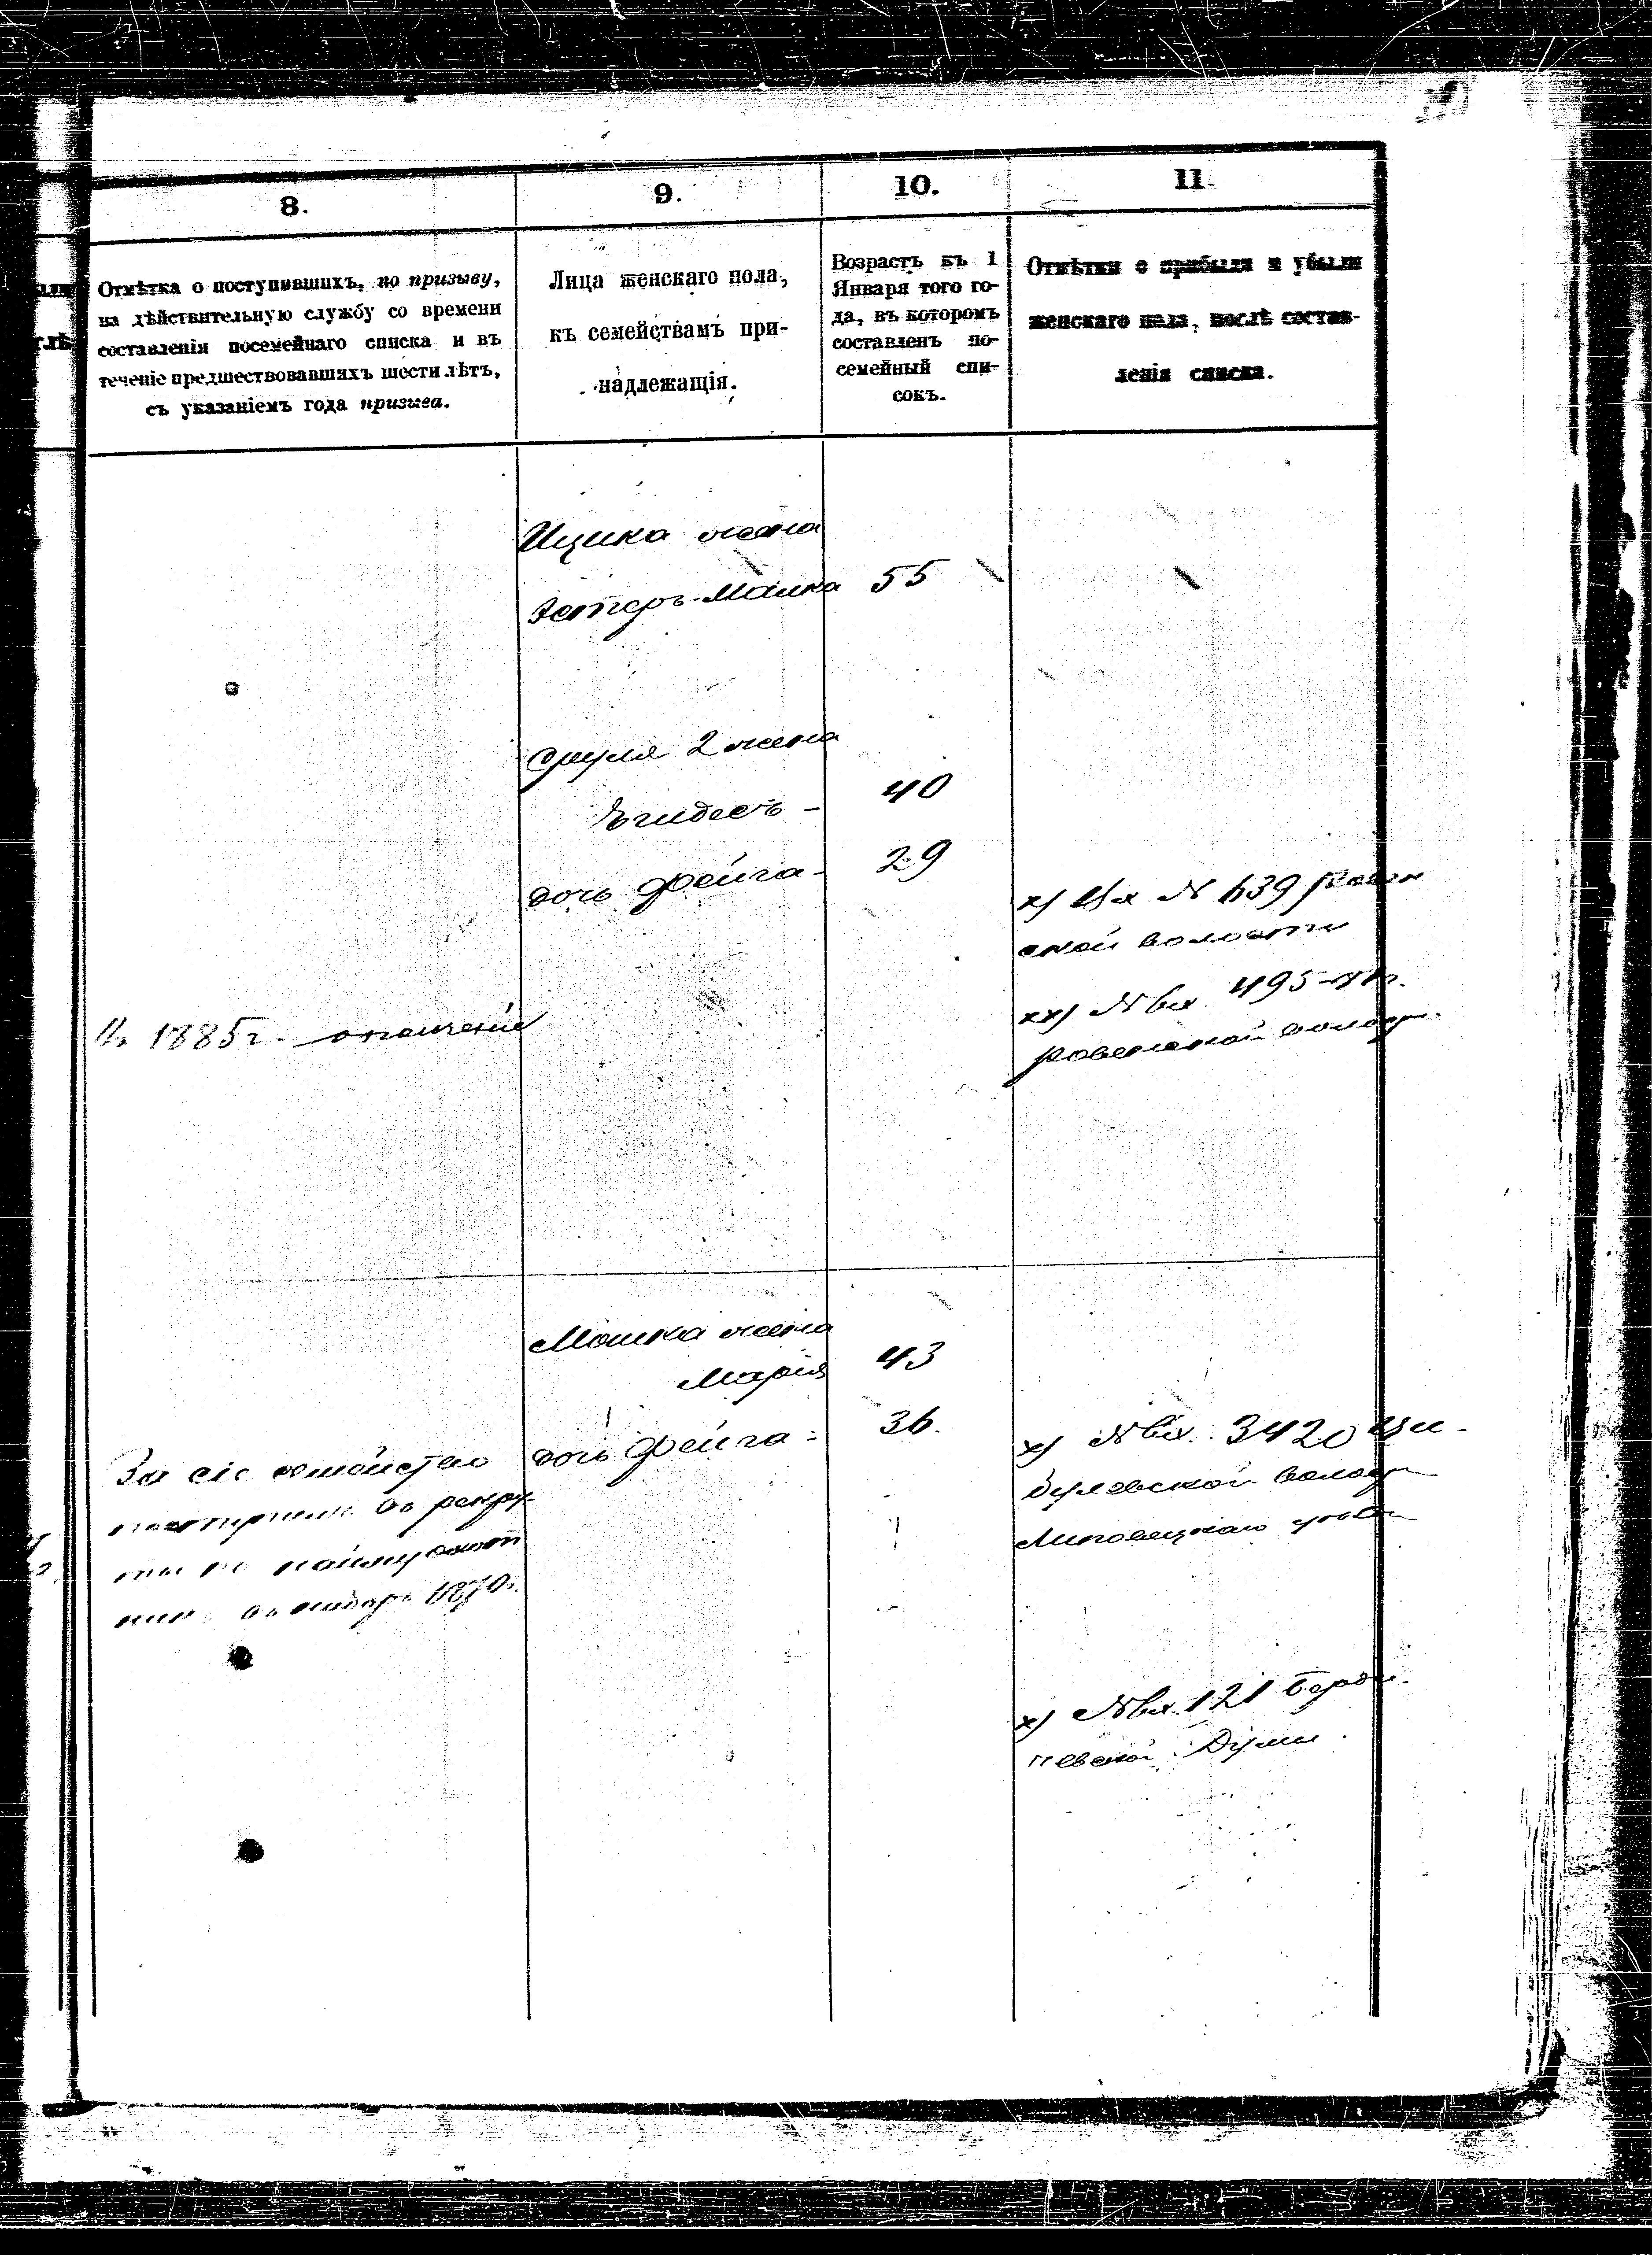 8.
9.
10.
11.
Отмѣтка о поступившихъ, по призыву,
на дѣйствительную службу со времени
составленія посемейнаго списка и въ
теченіе предшествовавшихъ шести лѣтъ,
съ указаніемъ года призыва.
Лица женскаго пола,
къ семействамъ при-
надлежащія.
Возрастъ къ 1
Января того го-
да, въ которомъ
составленъ по-
семейный спи-
сокъ.
Отмѣтки о прибыли и убыли
женскаго пола, послѣ состав-
ленія списка.
Ицика жена
Эстеръ-Малка 55
Сруля 2 жена
40
дочь Фейга - 29
х) Вх № 639
ской волости
хх) № вх 495
Ровенской волост
Въ 1885 г. ополченіе
Мошка жена
Марія 43
дочь Фейга - 36.
За сіе семейство
поступилъ въ рекру-
ты по найму охот
никъ въ январѣ 1870 г.
х) № вх. 3420 Ци-
булевской волост
Липовецкаго уѣзда
х) № вх. 121 Берди-
чевской Думы.